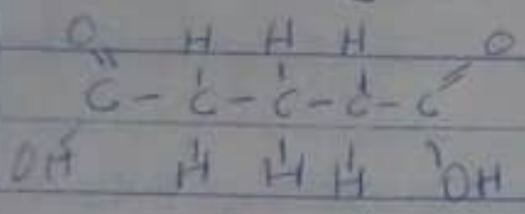 O H H H O
C - C - C - C - C
OH H H H OH